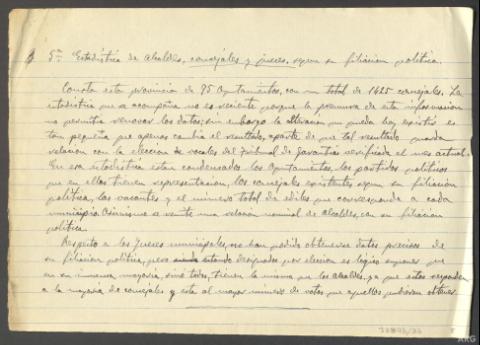 5ª Estadística de alcaldes, concejales y jueces, segun su filiacion politica.
Consta esta provincia de 95 Ayuntamientos, con un total de 1625 concejales. La
estadistica que se acompaña no es reciente porque la premura de esta informacion
no permitia renovar los datos; sin embargo la alteración que pueda hoy existir es
tan pequeña que apenas cambia el resultado, aparte de que tal resultado guarda
relacion con la eleccion de vocales del Tribunal de Garantias verificada el mes actual.
En esa estadistica estan condensados los Ayuntamientos, los partidos politicos
que en ellos tienen representacion, los concejales existentes segun su filiacion
politica, las vacantes y el número total de ediles que corresponde a cada
municipio. Asimismo se remite una relacion nominal de alcaldes, con su filiacion
politica.
Respecto a los Jueces municipales, no han podido obtenerse datos precisos de
su filiacion politica, pero siendo designados por eleccion es lógico suponer que
en su inmensa mayoria, sino todos, tienen la misma que los alcaldes, ya que estos responden
a la mayoria de concejales y esta al mayor número de votos que aquellos pudieron obtener.
ARG